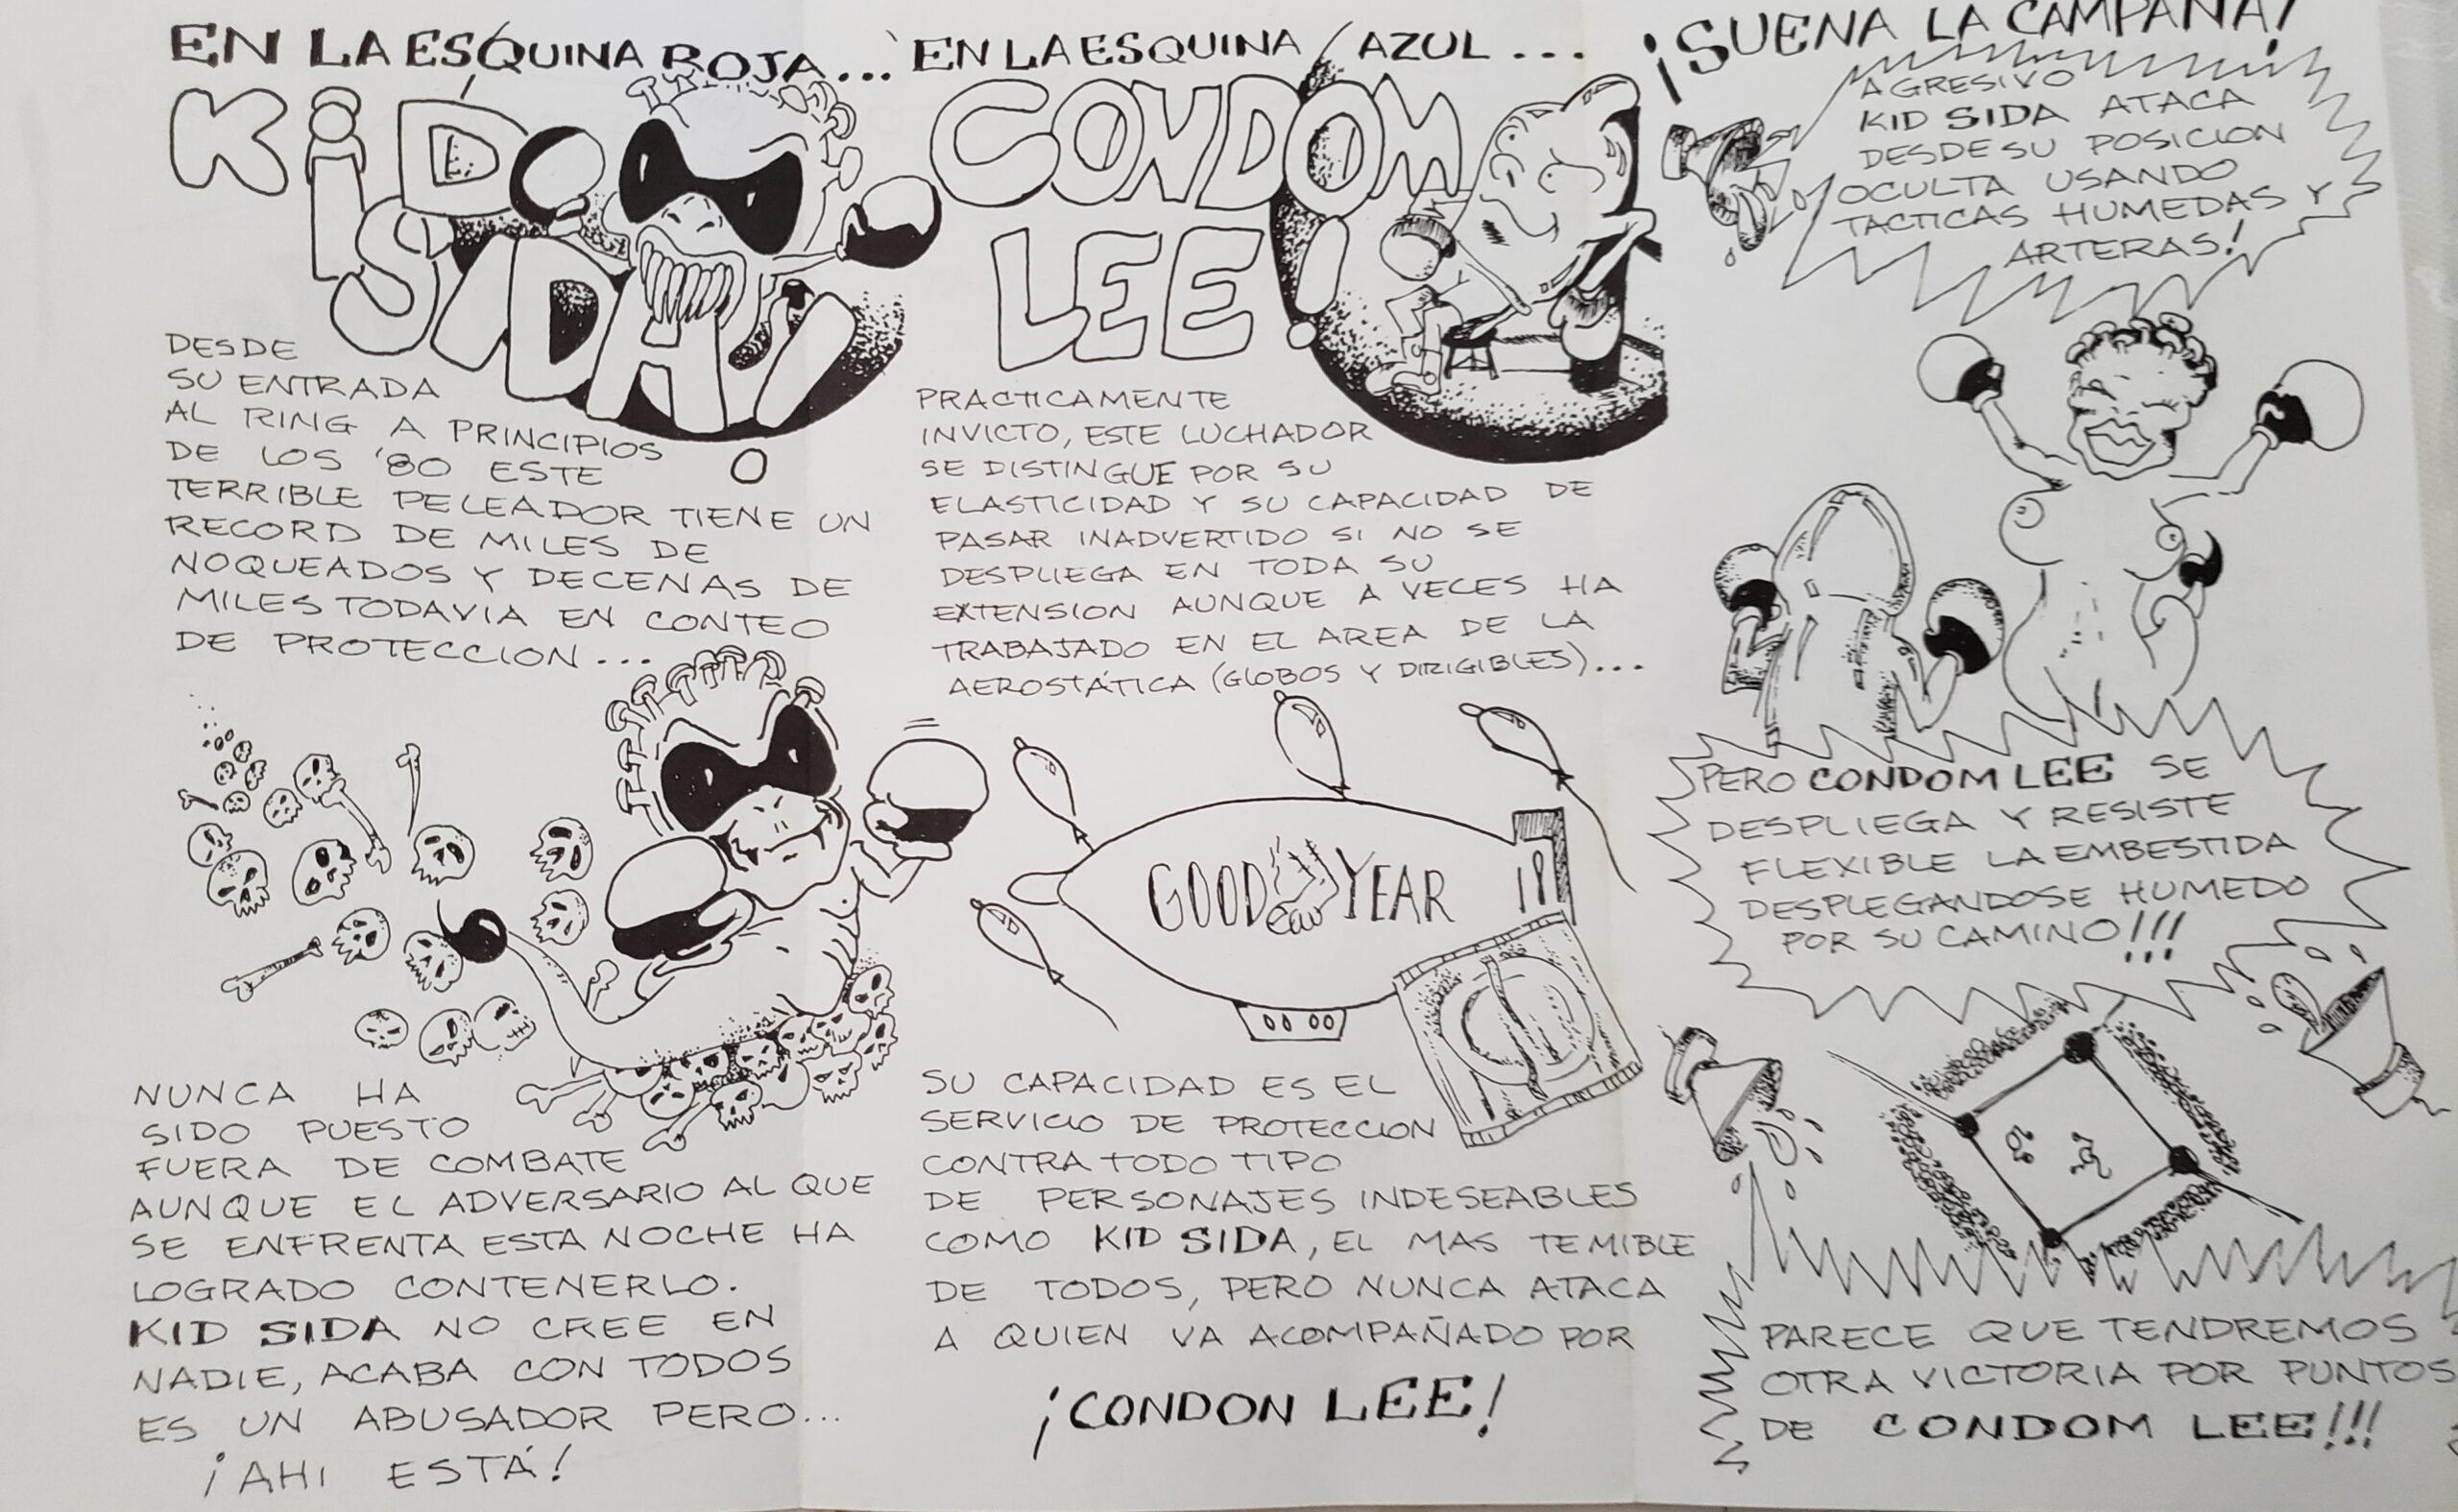 EN LA ESQUINA ROJA...
KID
SIDA!
DESDE
SU ENTRADA
AL RING A PRINCIPIOS
DE LOS '80 ESTE
TERRIBLE PELEADOR TIENE UN
RECORD DE MILES DE
NOQUEADOS Y DECENAS DE
MILES TODAVIA EN CONTEO
DE PROTECCION...
NUNCA HA
SIDO PUESTO
FUERA DE COMBATE
AUNQUE EL ADVERSARIO AL QUE
SE ENFRENTA ESTA NOCHE HA
LOGRADO CONTENERLO.
KID SIDA NO CREE EN
NADIE, ACABA CON TODOS
ES UN ABUSADOR PERO...
¡AHI ESTÁ!
EN LA ESQUINA AZUL...
CONDOM
LEE!
PRACTICAMENTE
INVICTO, ESTE LUCHADOR
SE DISTINGUE POR SU
ELASTICIDAD Y SU CAPACIDAD DE
PASAR INADVERTIDO SI NO SE
DESPLIEGA EN TODA SU
EXTENSION AUNQUE A VECES HA
TRABAJADO EN EL AREA DE LA
AEROSTÁTICA (GLOBOS Y DIRIGIBLES)...
GOOD YEAR
SU CAPACIDAD ES EL
SERVICIO DE PROTECCION
CONTRA TODO TIPO
DE PERSONAJES INDESEABLES
COMO KID SIDA, EL MAS TEMIBLE
DE TODOS, PERO NUNCA ATACA
A QUIEN VA ACOMPAÑADO POR
¡CONDON LEE!
¡SUENA LA CAMPANA!
AGRESIVO
KID SIDA ATACA
DESDE SU POSICION
OCULTA USANDO
TACTICAS HUMEDAS Y
ARTERAS!
PERO CONDOM LEE SE
DESPLIEGA Y RESISTE
FLEXIBLE LA EMBESTIDA
DESPLEGANDOSE HUMEDO
POR SU CAMINO!!!
PARECE QUE TENDREMOS
OTRA VICTORIA POR PUNTOS
DE CONDOM LEE!!!